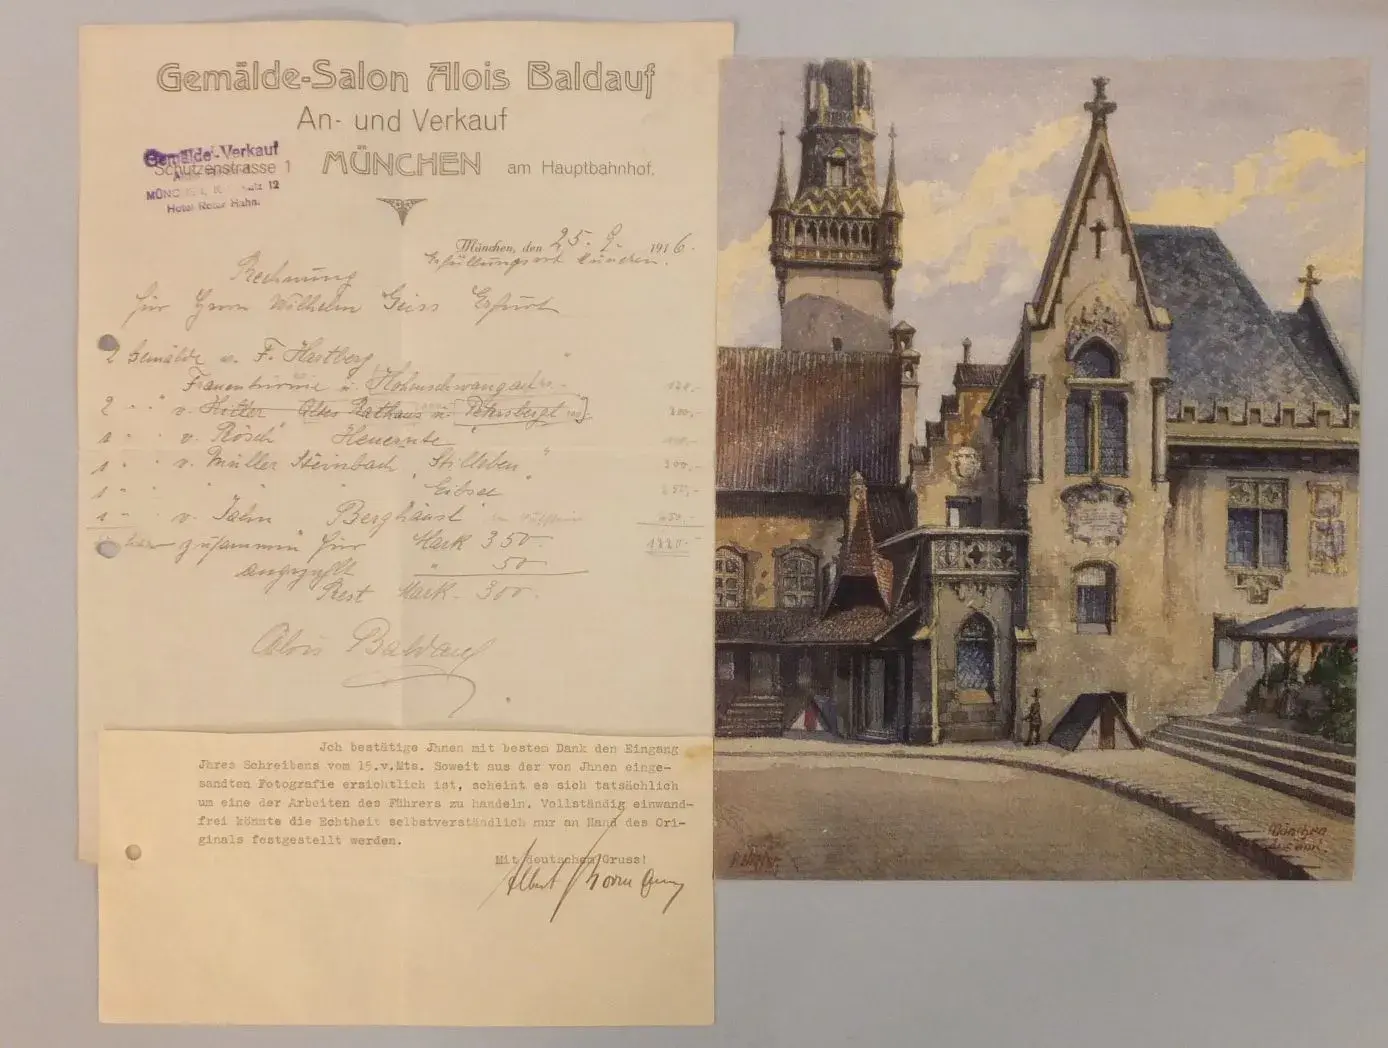 Gemälde-Salon Alois Baldauf
An- und Verkauf
Gemälde-Verkauf
Schützenstrasse 1 MÜNCHEN am Hauptbahnhof.
12
Hotel Roter Hahn.
München, den 25. 9. 1916.
Erfüllungsort München.
Rechnung
für Herrn Wilhelm Geiss Erfurt
2 Gemälde v. F. Hartberg
Frauentürme u. Hohenschwangau 120.-
2 " " v. Hitler Altes Rathaus u. Petersbergl
1 " " v. Rösch "Heuernte"
1 " " v. Müller Steinbach "Stilleben" 300,-
1 " " " " " Eibsee 250,-
1 " " v. Jahn Berghäusl
zusammen für Mark 350.-
angezahlt " 50.-
Rest Mark 300.-
Alois Baldauf
Jch bestätige Jhnen mit bestem Dank den Eingang
Jhres Schreibens vom 15.v.Mts. Soweit aus der von Jhnen einge-
sandten Fotografie ersichtlich ist, scheint es sich tatsächlich
um eine der Arbeiten des Führers zu handeln. Vollständig einwand-
frei könnte die Echtheit selbstverständlich nur an Hand des Ori-
ginals festgestellt werden.
Mit deutschem Gruss!
Albert Bormann
München